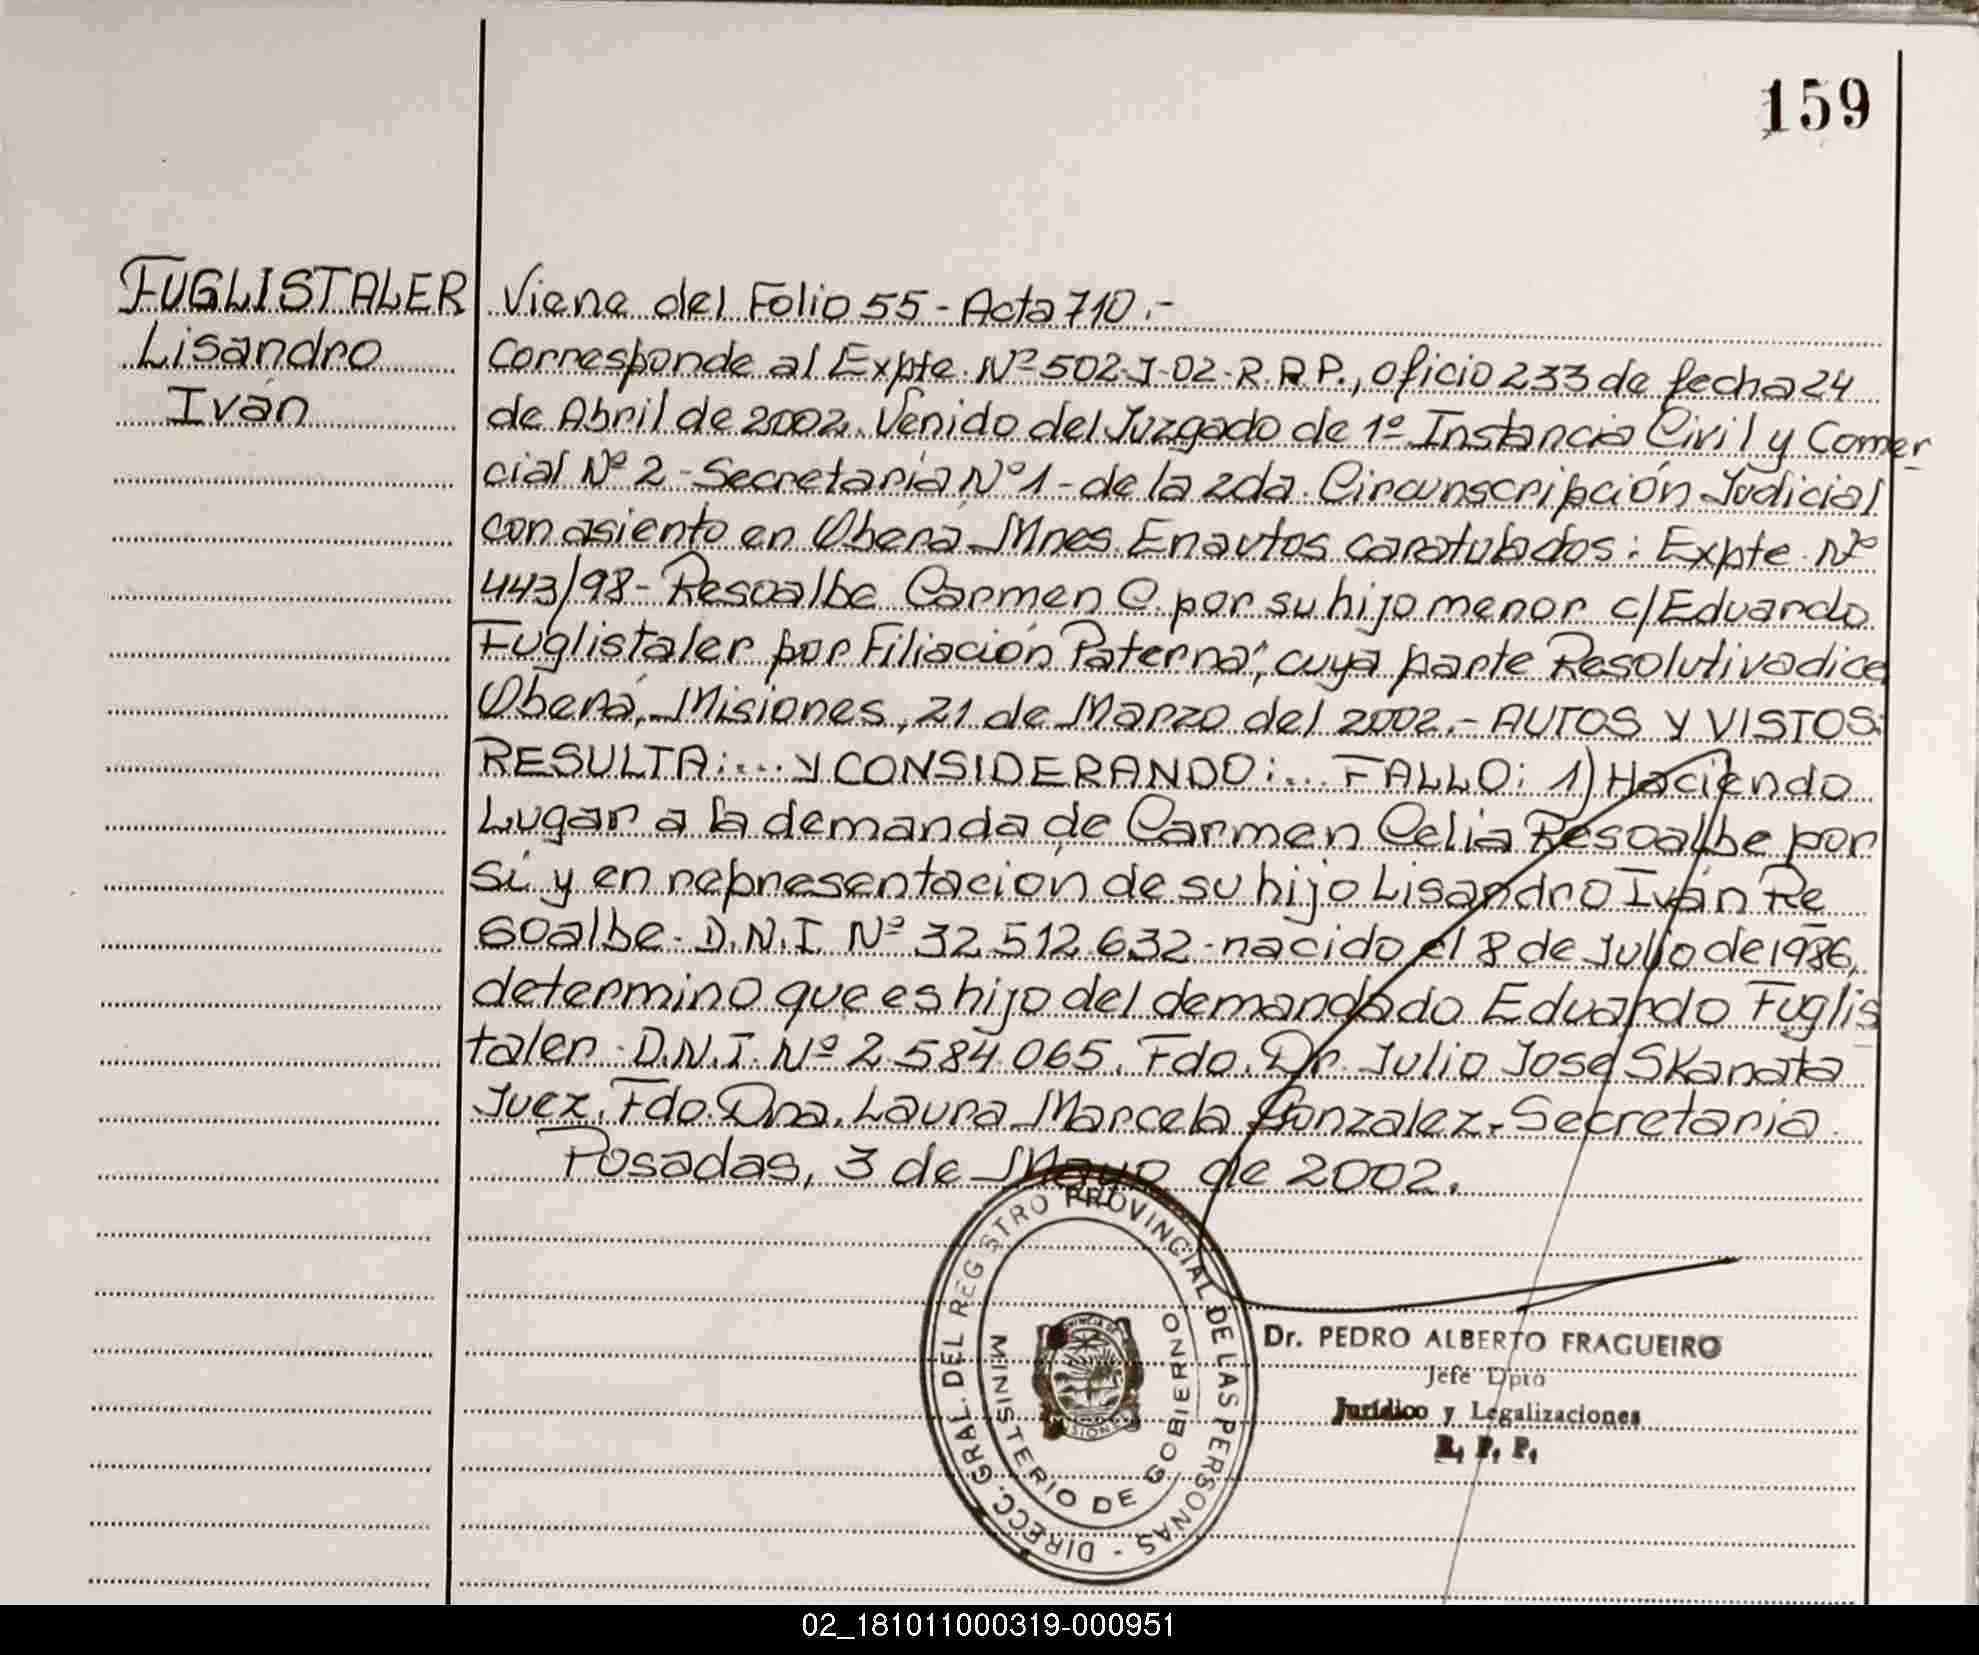 159
FUGLISTALER
Lisandro
Iván
Viene del Folio 55 - Acta 710.-
Corresponde al Expte. Nº 502-J-02-R.P.P., oficio 233 de fecha 24
de Abril de 2002. Venido del Juzgado de 1º Instancia Civil y Comer
cial Nº 2 - Secretaría Nº 1 - de la 2da. Circunscripción Judicial
con asiento en Oberá Mnes. En autos caratulados: Expte. Nº
443/98 - Resoalbe Carmen C. por su hijo menor c/ Eduardo
Fuglistaler por Filiación Paterna", cuya parte Resolutiva dice
Oberá, Misiones, 21 de Marzo del 2002.- AUTOS Y VISTOS:
RESULTA:... Y CONSIDERANDO:... FALLO: 1) Haciendo
Lugar a la demanda de Carmen Celia Resoalbe por
sí y en representación de su hijo Lisandro Iván Re
soalbe - D.N.I. Nº 32.512.632 - nacido el 8 de Julio de 1986,
determino que es hijo del demandado Eduardo Fuglis
taler - D.N.I. Nº 2.584.065. Fdo. Dr. Julio José Skanata
Juez. Fdo. Dra. Laura Marcela Gonzalez - Secretaria.
Posadas, 3 de Mayo de 2002.
DIRECC. GRAL. DEL REGISTRO PROVINCIAL DE LAS PERSONAS -
MINISTERIO DE GOBIERNO
Dr. PEDRO ALBERTO FRAGUEIRO
Jefe Dpto
Jurídico y Legalizaciones
R. P. P.
02_181011000319-000951